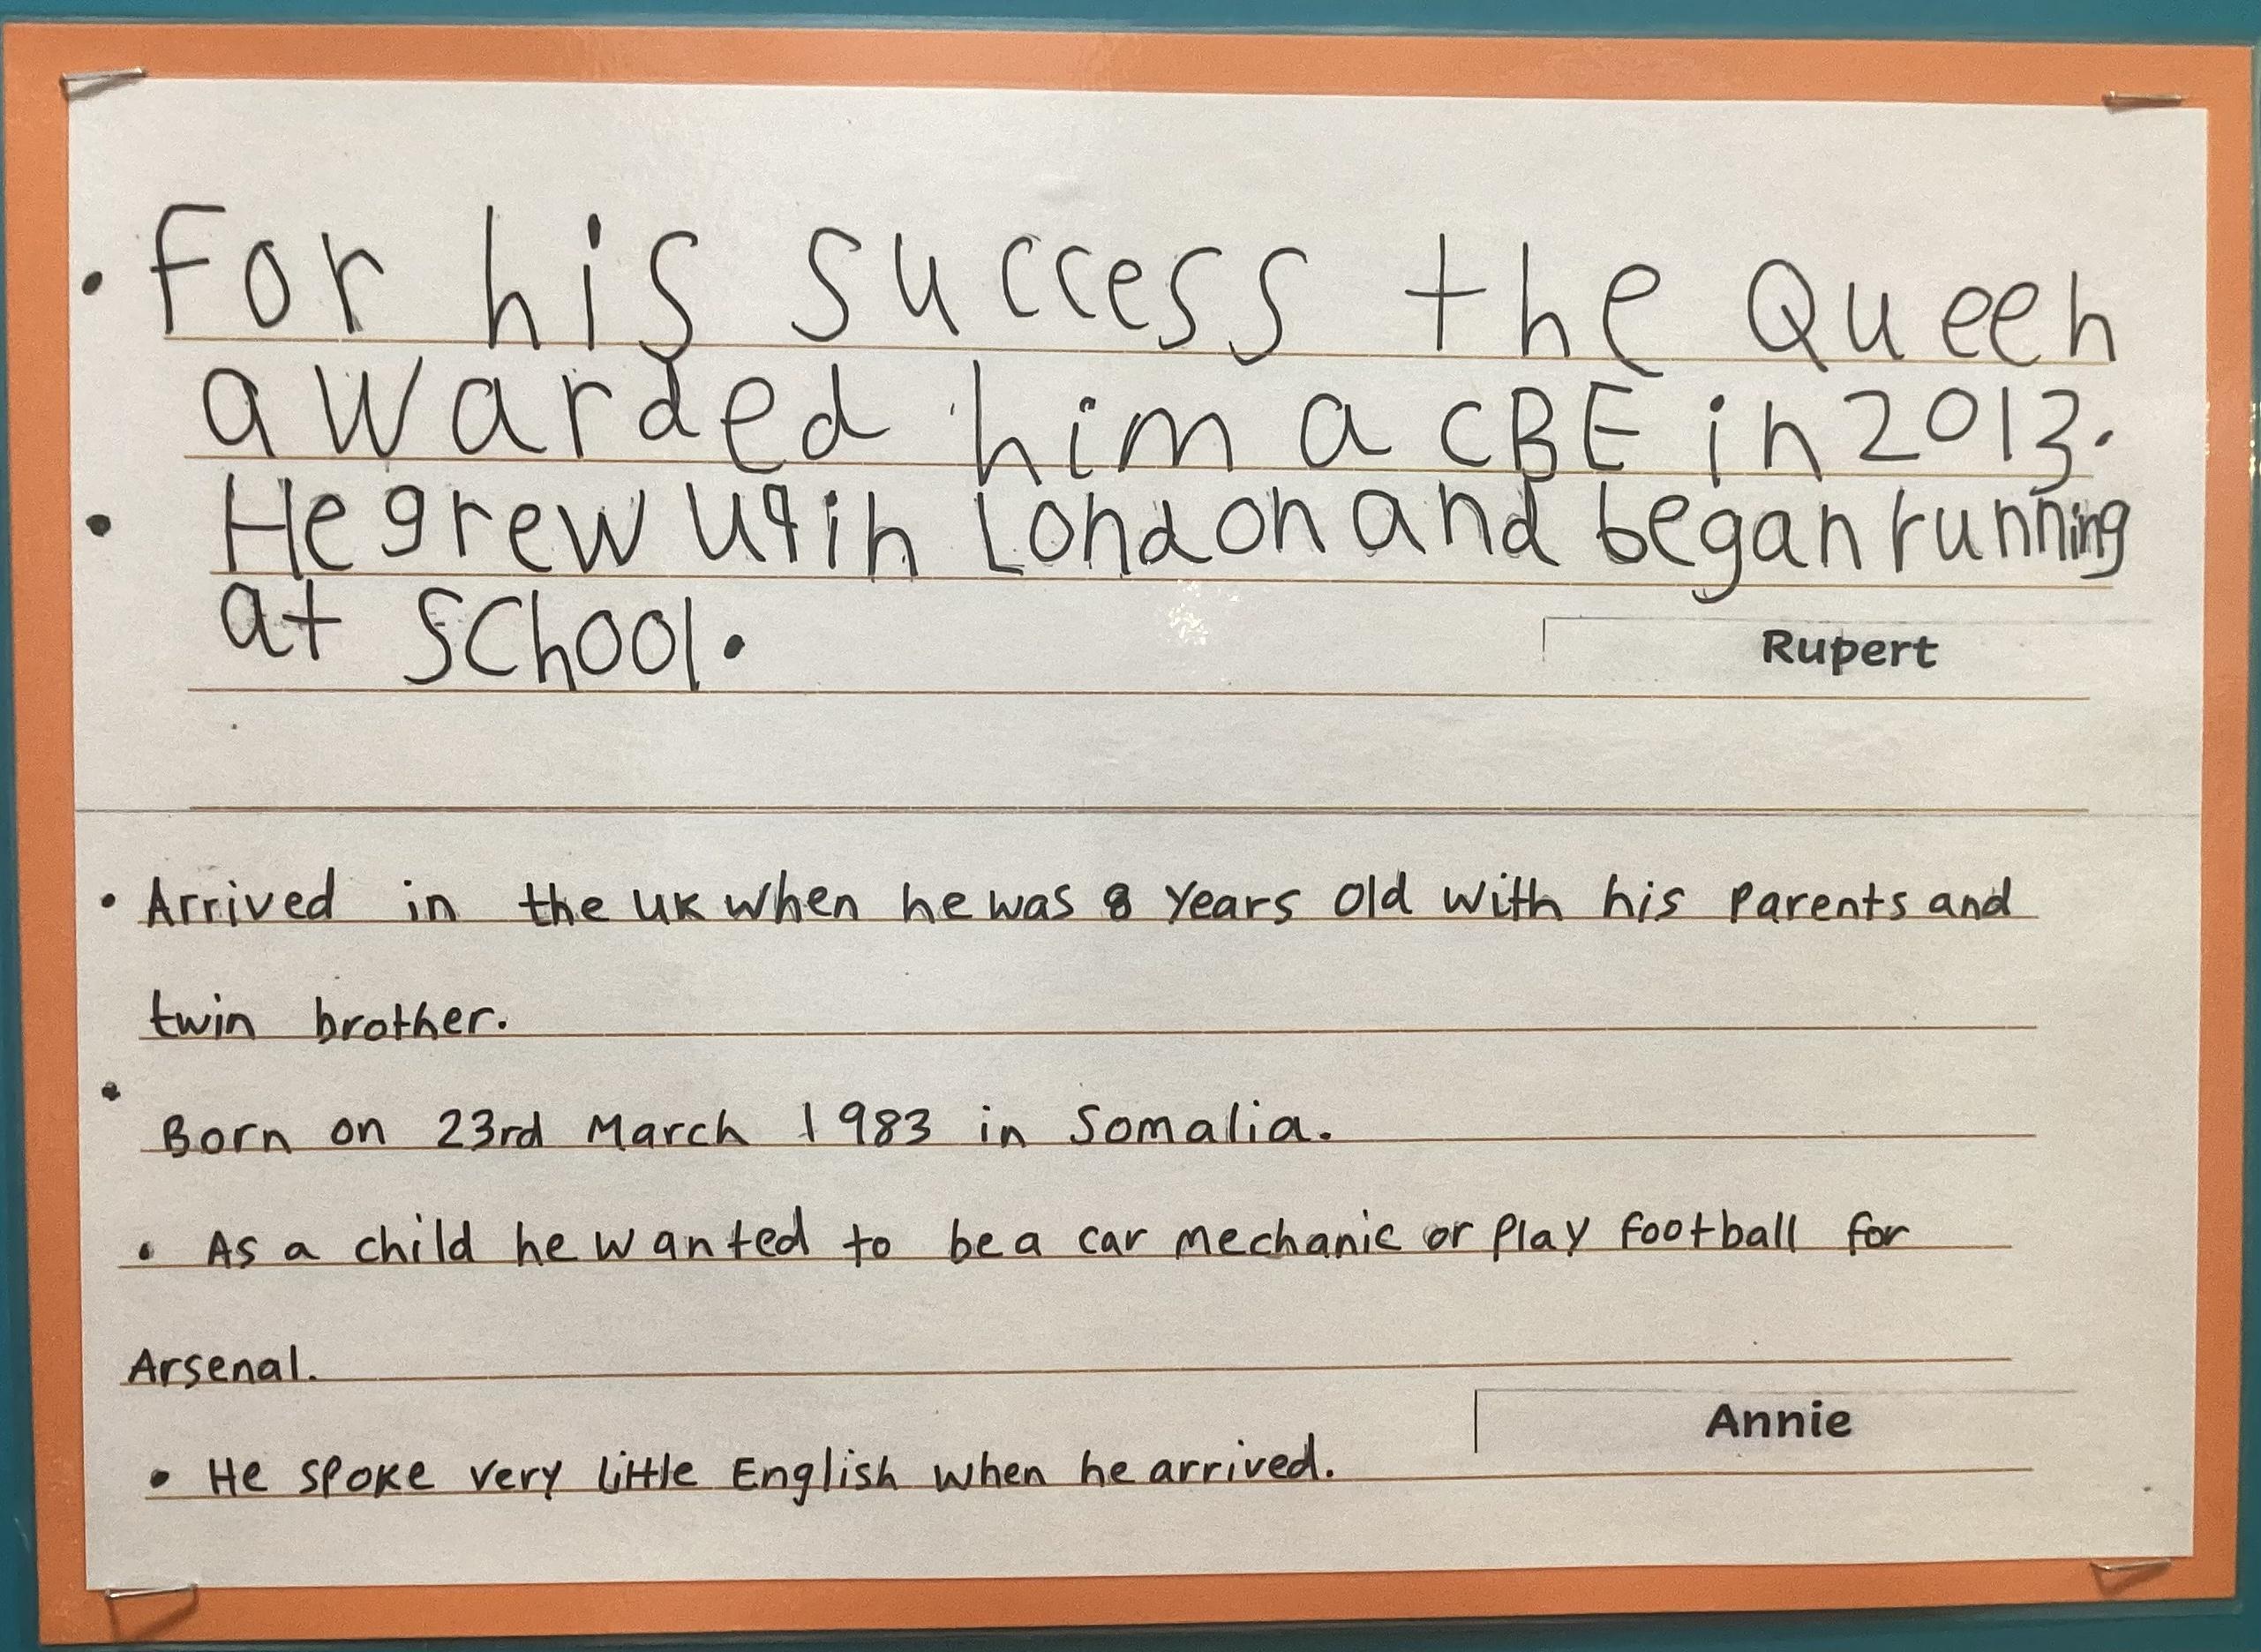 • For his success the Queen
awarded him a CBE in 2013.
• He grew up in London and began running
at School.
Rupert
• Arrived in the UK when he was 8 years old with his parents and
twin brother.
• Born on 23rd March 1983 in Somalia.
• As a child he wanted to be a car mechanic or play football for
Arsenal.
Annie
• He spoke very little English when he arrived.